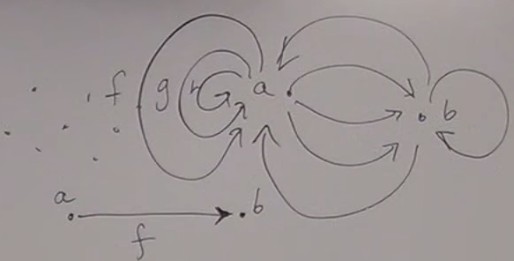 f g r a b
a b
f